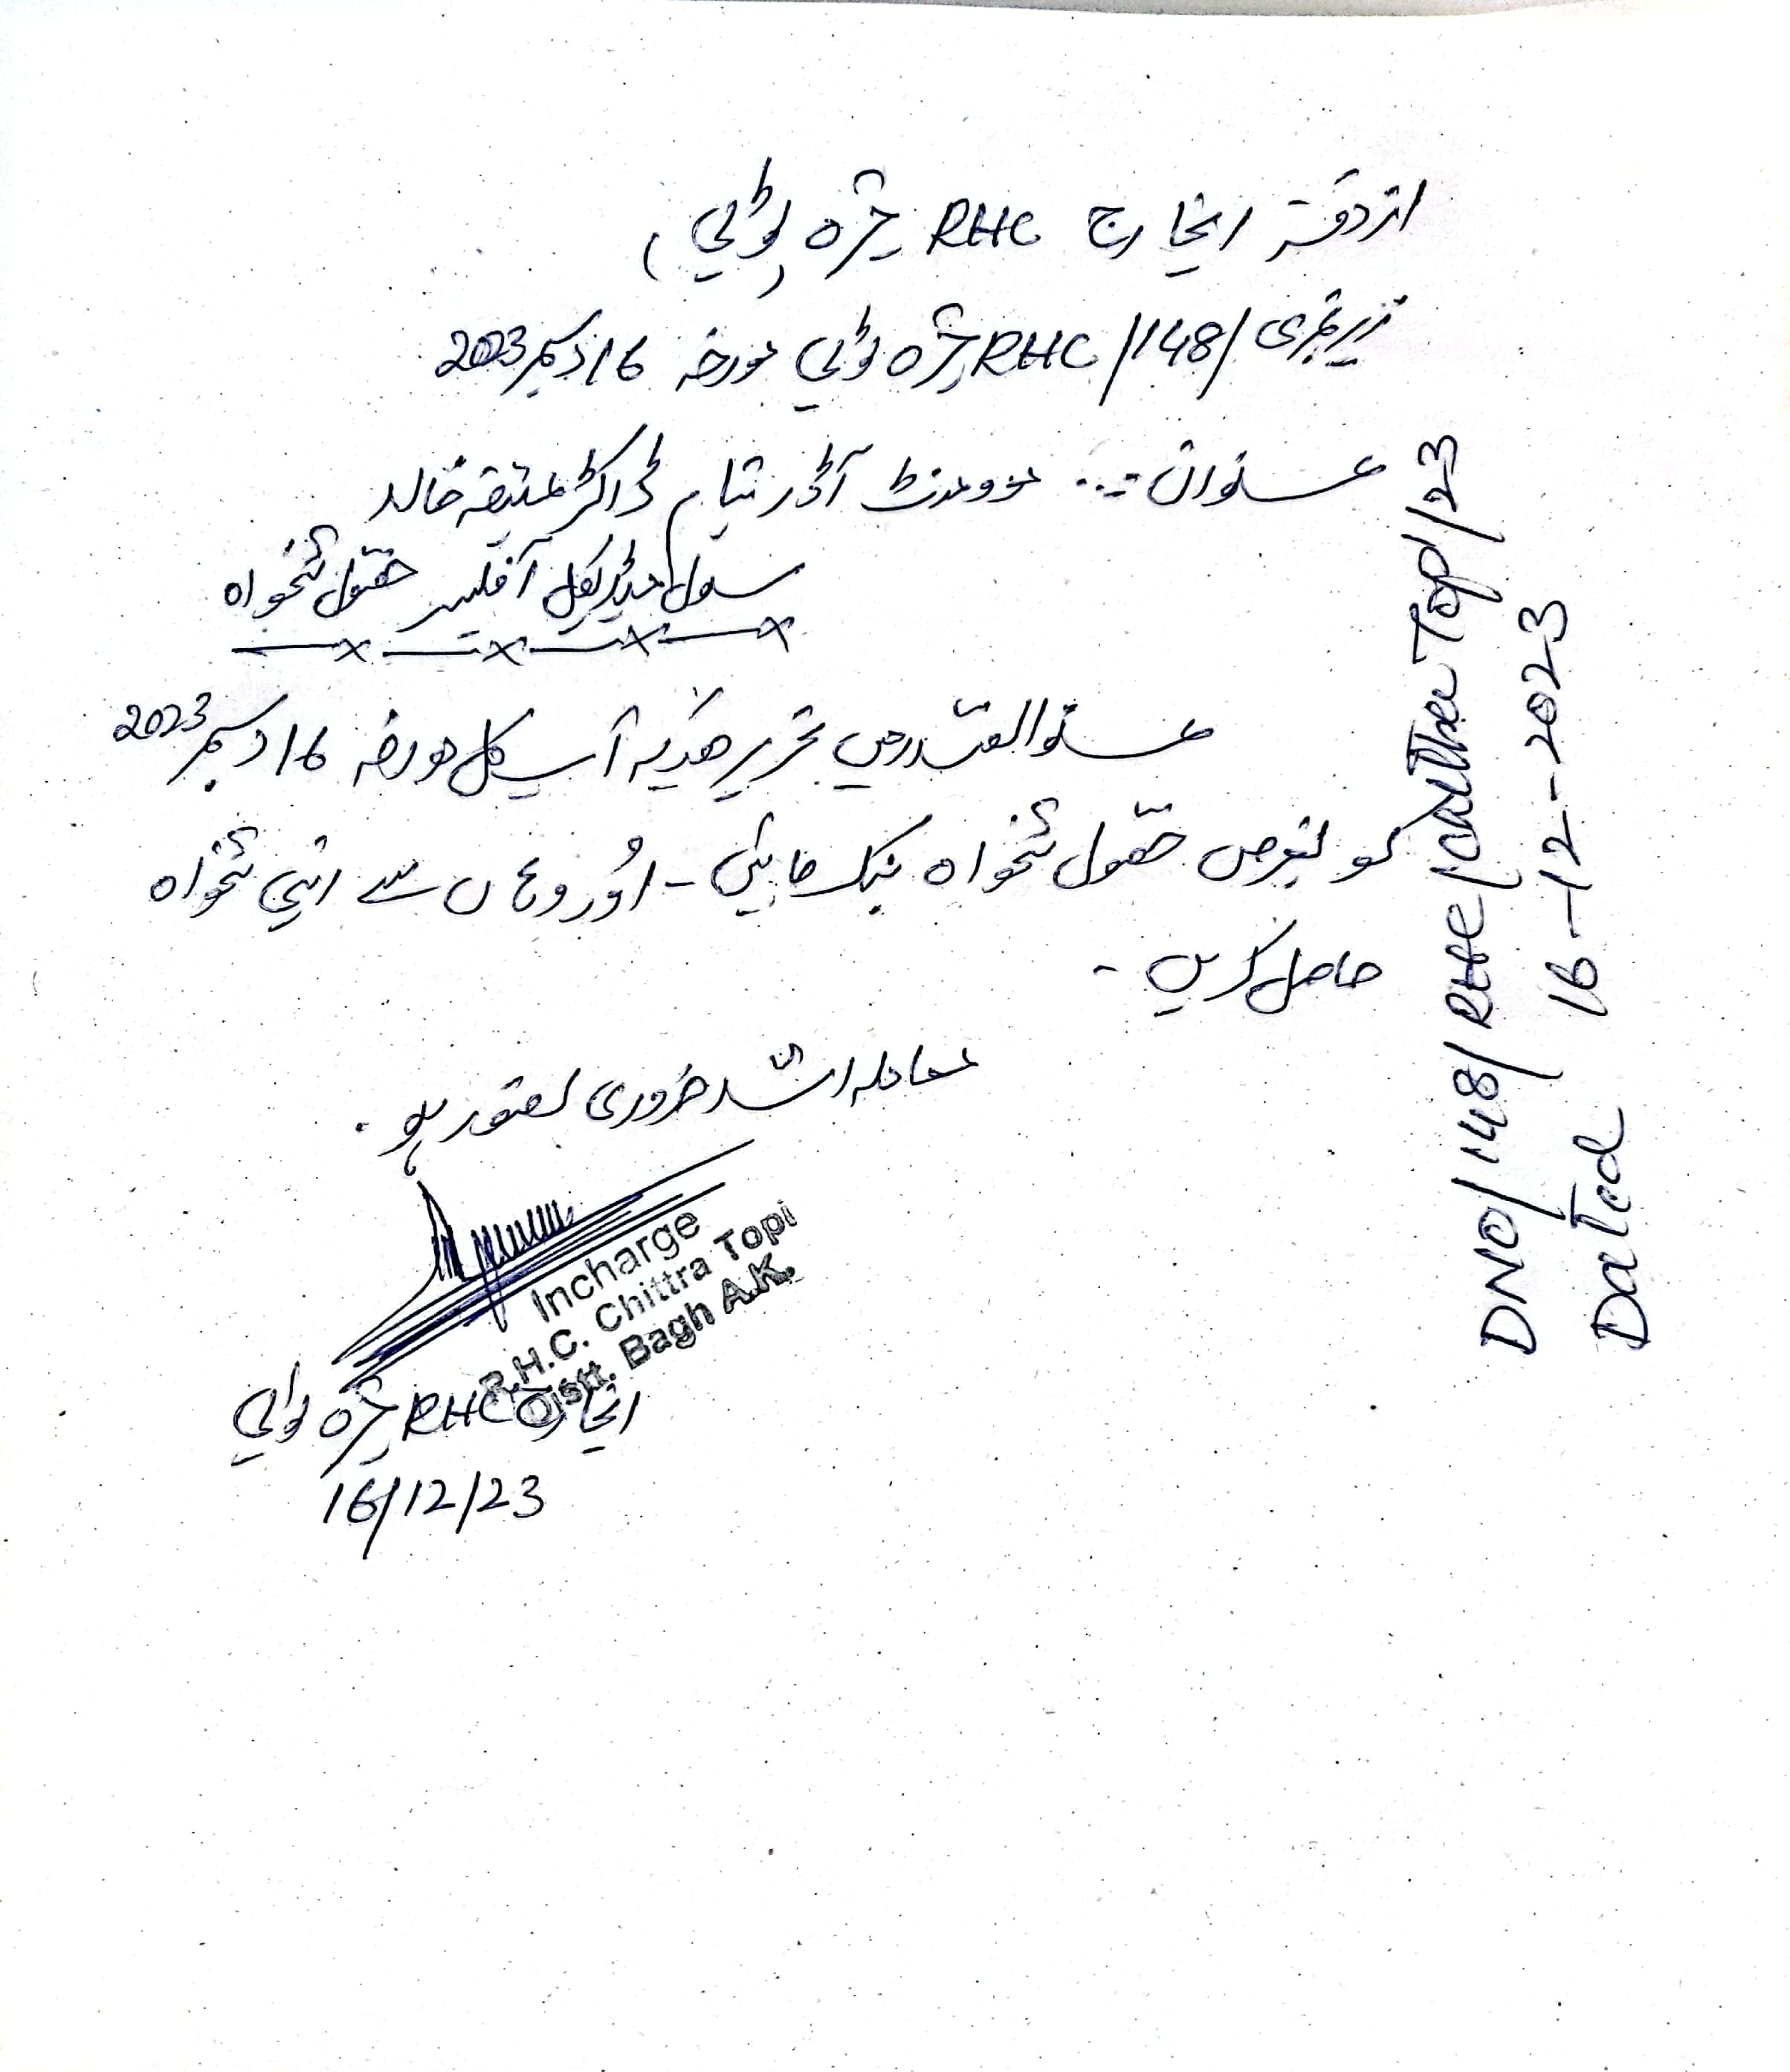 از دفتر انچارج RHC چترہ ٹوپی
زیر نمبری /148/ RHC چترہ ٹوپی مورخہ 16 دسمبر 2023
عنوان :۔ موومنٹ آڈر بنام ڈاکٹر عتیقہ خالد
سول میڈیکل آفیسر حصول تنخواہ
عنوان الصدر میں تحریر ہیکہ آپ کل مورخہ 16 دسمبر 2023
کو بغرض حصول تنخواہ بنک جائیں - اور وہاں سے اپنی تنخواہ
حاصل کریں -
معاملہ اشد ضروری تصور ہو .
Incharge
R.H.C. Chittra Topi
Distt. Bagh A.K.
انچارج RHC چترہ ٹوپی
16/12/23
DNO/148/RHC/Chitthra Topi/23
Dated 16-12-2023